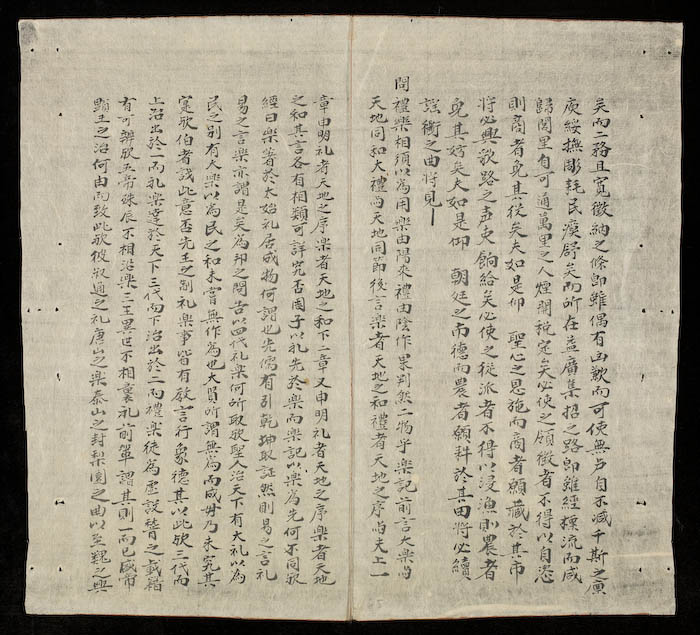 矣而二務且寬徵納之條即雖偶有凶歉而可使無戶自不减千斯之廩
庾綏撫彫耗民瘼舒矣而所在益廣集招之路即雖經標流而咸
歸閭里自可通萬里之人煙關稅定矣必使之領徵者不得以自恣
則商者免其役矣夫如是仰　聖心之恩施而商者願藏於其市
將必興歌路之盂吏餉給矣必使之從派者不得以浸漁則農者
免其妨矣夫如是仰　朝廷之南德而農者願耕於其田將必續
謠衢之曲將見
問禮樂相須以為用樂由陽來禮由陰作果判然二物乎樂記前言大樂与
天地同和大禮与天地同節後言樂者天地之和禮者天地之序与夫上一
章申明礼者天地之序樂者天地之和下二章又申明礼者天地之序樂者天地
之和其言各有相類可詳究否周子以礼先於樂而樂記以樂為先何不同歟
經曰樂著於太始礼居成物何謂也先儒有引乾坤取証然則易之言礼
易之言樂亦謂是矣為邦之問告以四代礼樂何所取歟聖人治天下有大礼以為
民之別有大樂以為民之和未嘗無作為也大賢所謂無為而成毋乃未究其
寔歟伯者議此意否先王之制礼樂事皆有教言行象德其以此歟三代而
上治出於一而礼樂達於天下三代而下治出於二而禮樂徒為虛設稽之載籍
有可辨歟五帝殊辰不相沿樂三王異世不相襲礼前軰謂其則一而已感市
顯王之治何由而致此歟彼叔通之礼唐山之樂泰山之封梨園之曲以至魏之興